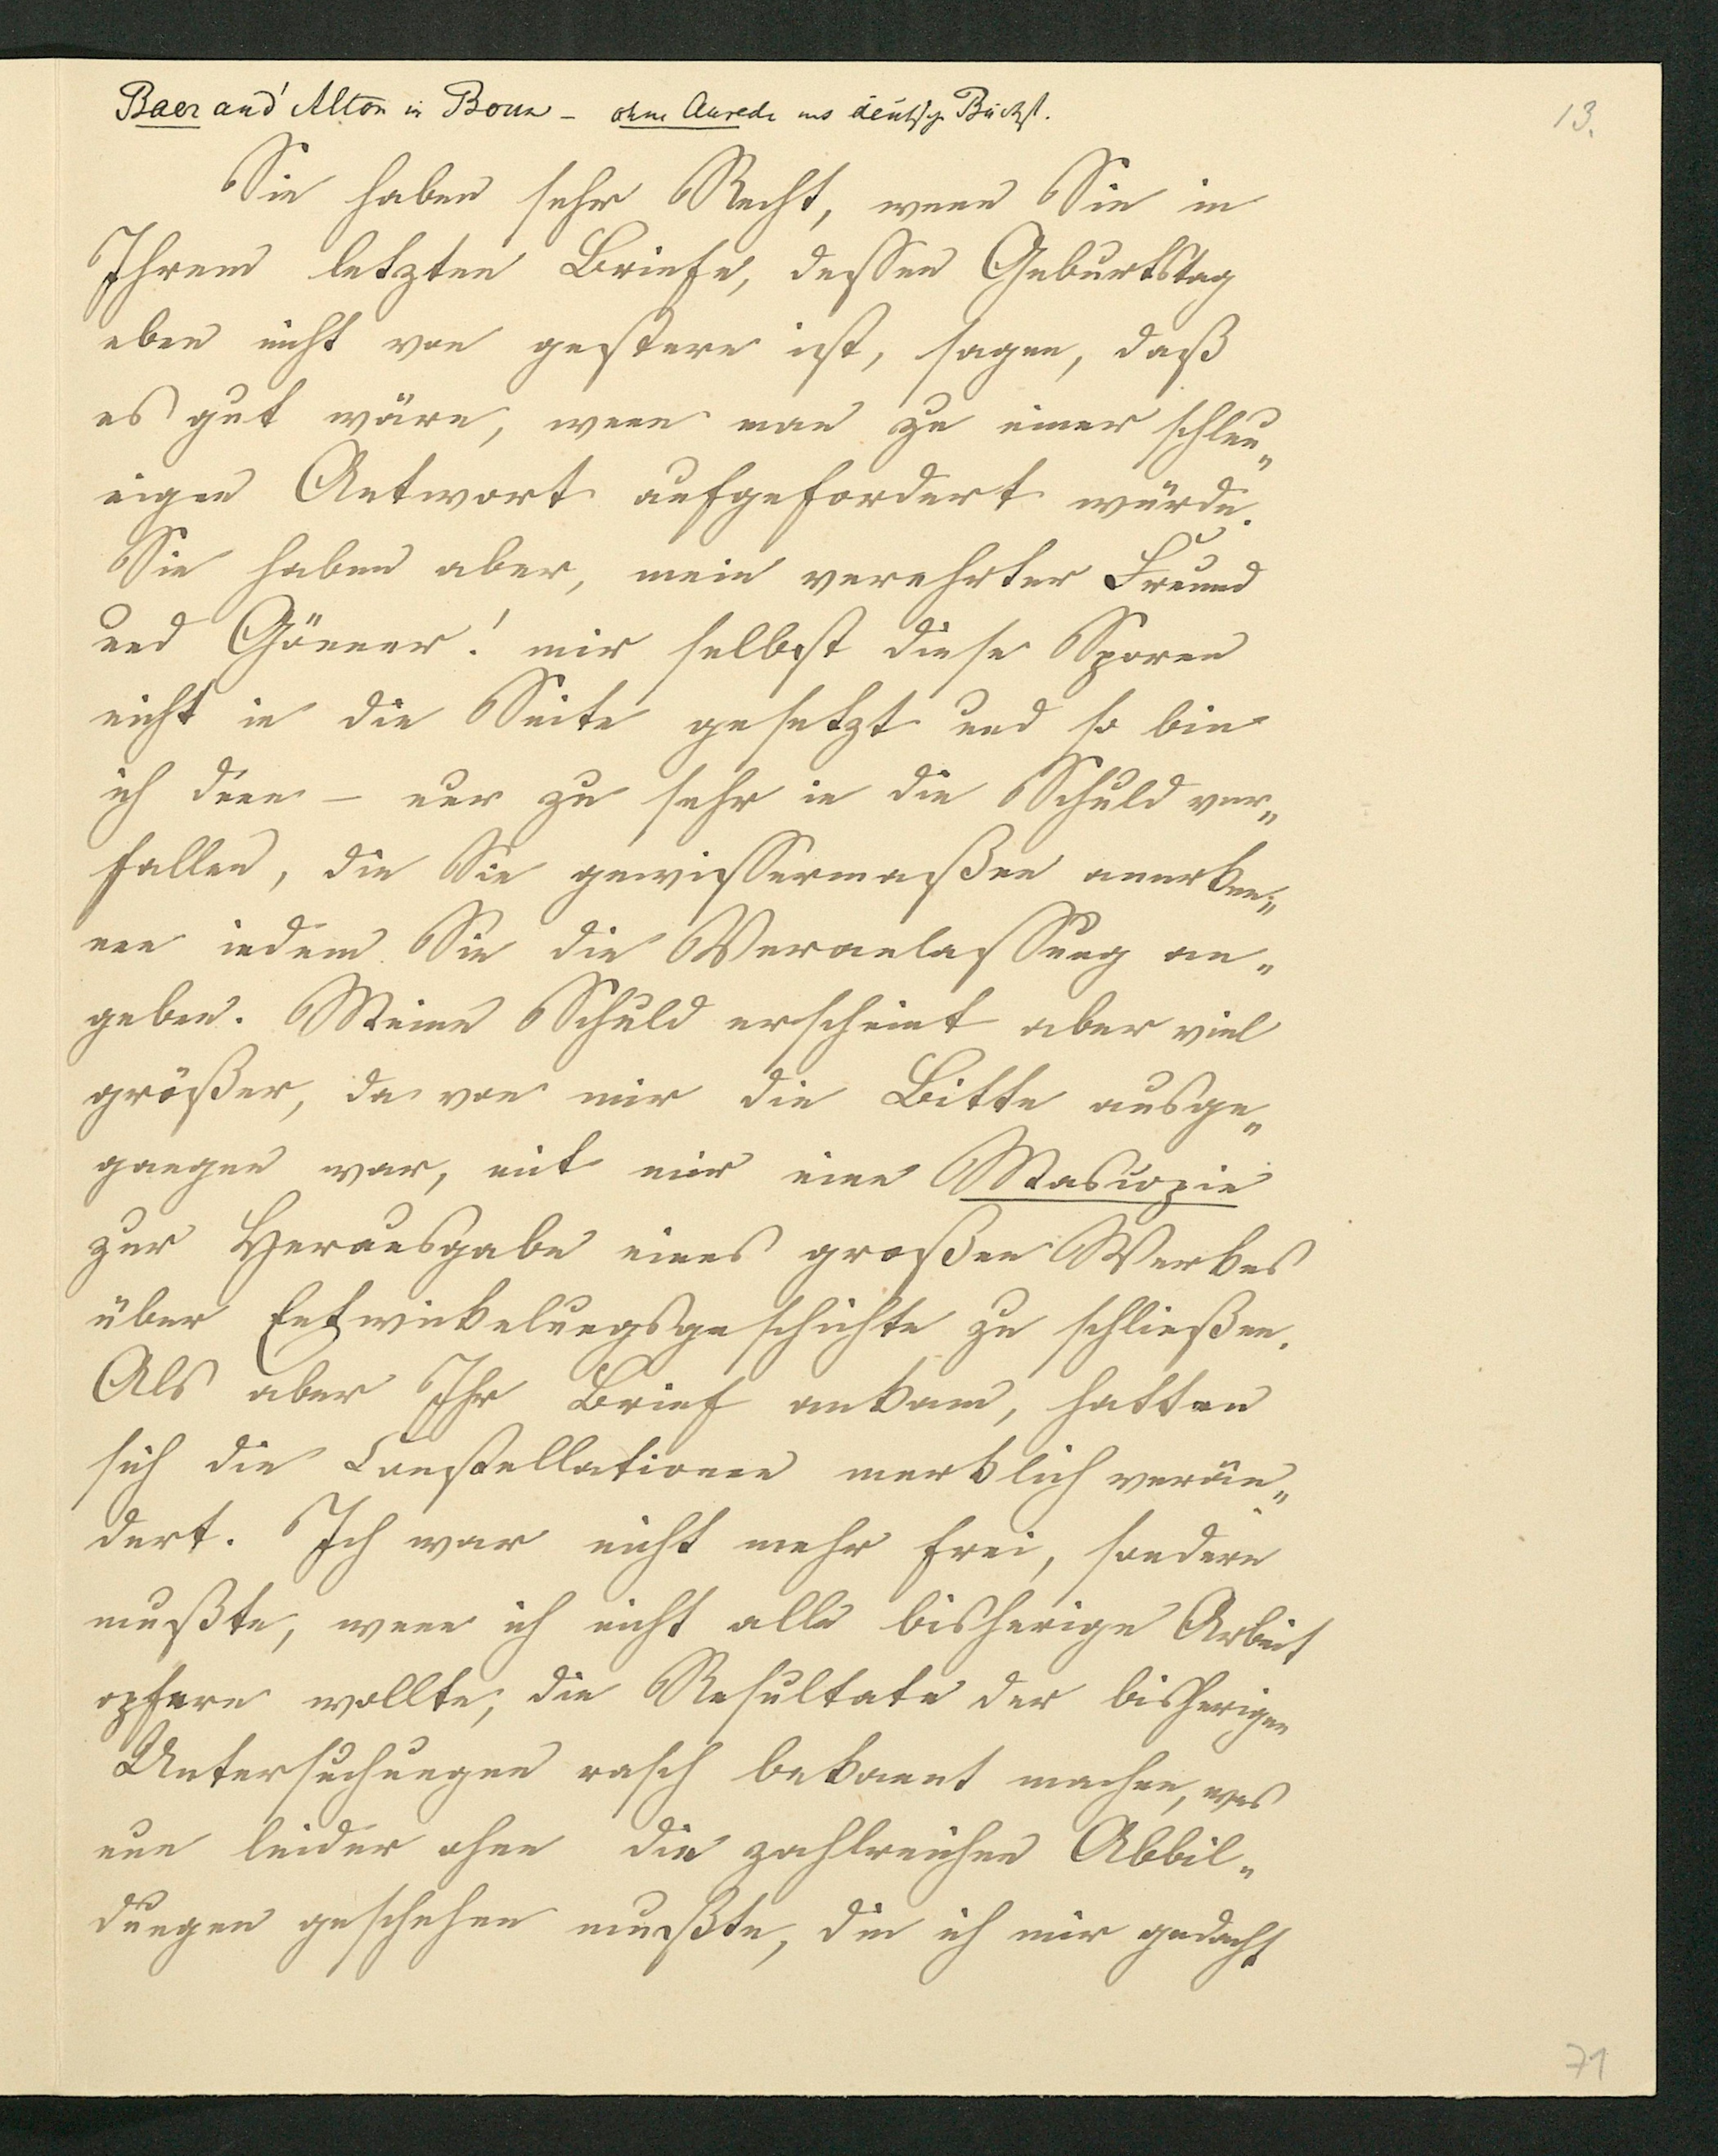 Baer an d'Alton in Bonn – ohne Anrede mit deutsch. Buchst.
13.
Sie haben sehr Recht, wenn Sie in
Ihrem letzten Briefe, dessen Geburtstag
eben nicht von gestern ist, sagen, daß
es gut wäre, wenn man zu einer schleu„
nigen Antwort aufgefordert würde.
Sie haben aber, mein verehrter Freund
und Gönner! mir selbst diese Sporen
nicht in die Seite gesetzt und so bin
ich denn – nur zu sehr in die Schuld ver„
fallen, die Sie gewissermaßen anerken„
nen indem Sie die Veranlassung an„
geben. Meine Schuld erscheint aber viel
größer, da von mir die Bitte ausge„
gangen war, mit mir eine Mascopie
zur Herausgabe eines großen Werkes
über Entwickelungsgeschichte zu schließen.
Als aber Ihr Brief ankam, hatten
sich die Constellationen merklich verän„
dert. Ich war nicht mehr frei, sondern
mußte, wenn ich nicht alle bisherige Arbeit
opfern wollte, die Resultate der bisherigen
Untersuchungen rasch bekannt machen, was
nun leider ohne die zahlreichen Abbil„
dungen geschehen mußte, die ich mir gedacht
71